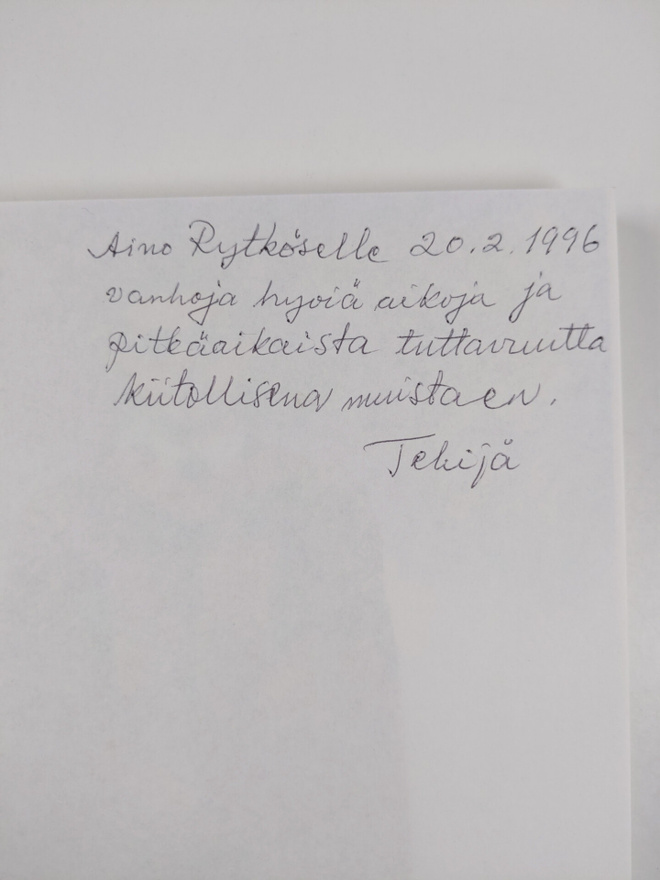 Aino Rytköselle 20.2.1996
vanhoja hyviä aikoja ja
pitkäaikaista tuttavuutta
kiitollisena muistaen.
Tekijä